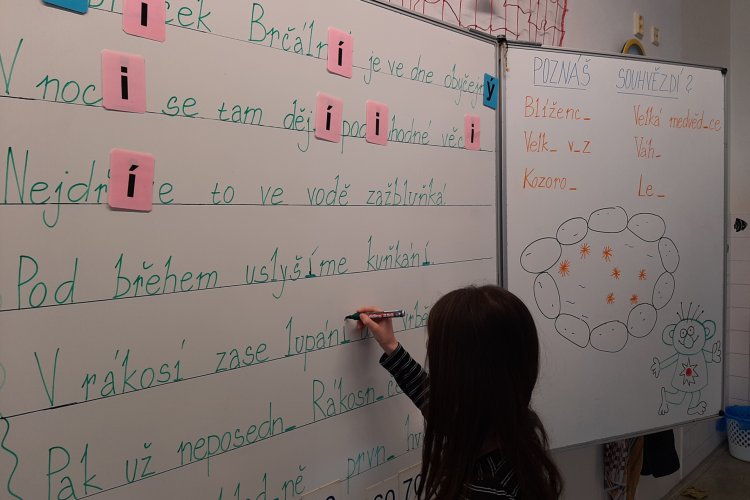 Brčální je ve dne obyčejný
V noci se tam dějí podivuhodné věci.
Nejdříve to ve vodě zažbluňká.
Pod břehem uslyšíme kuňkání.
V rákosí zase lupání
Pak už neposedn_ Rákosn_
prvn_
POZNÁŠ SOUHVĚZDÍ?
Blíženc_ Velká medvěd_ce
Velk_ v_z Váh_
Kozoro_ Le_